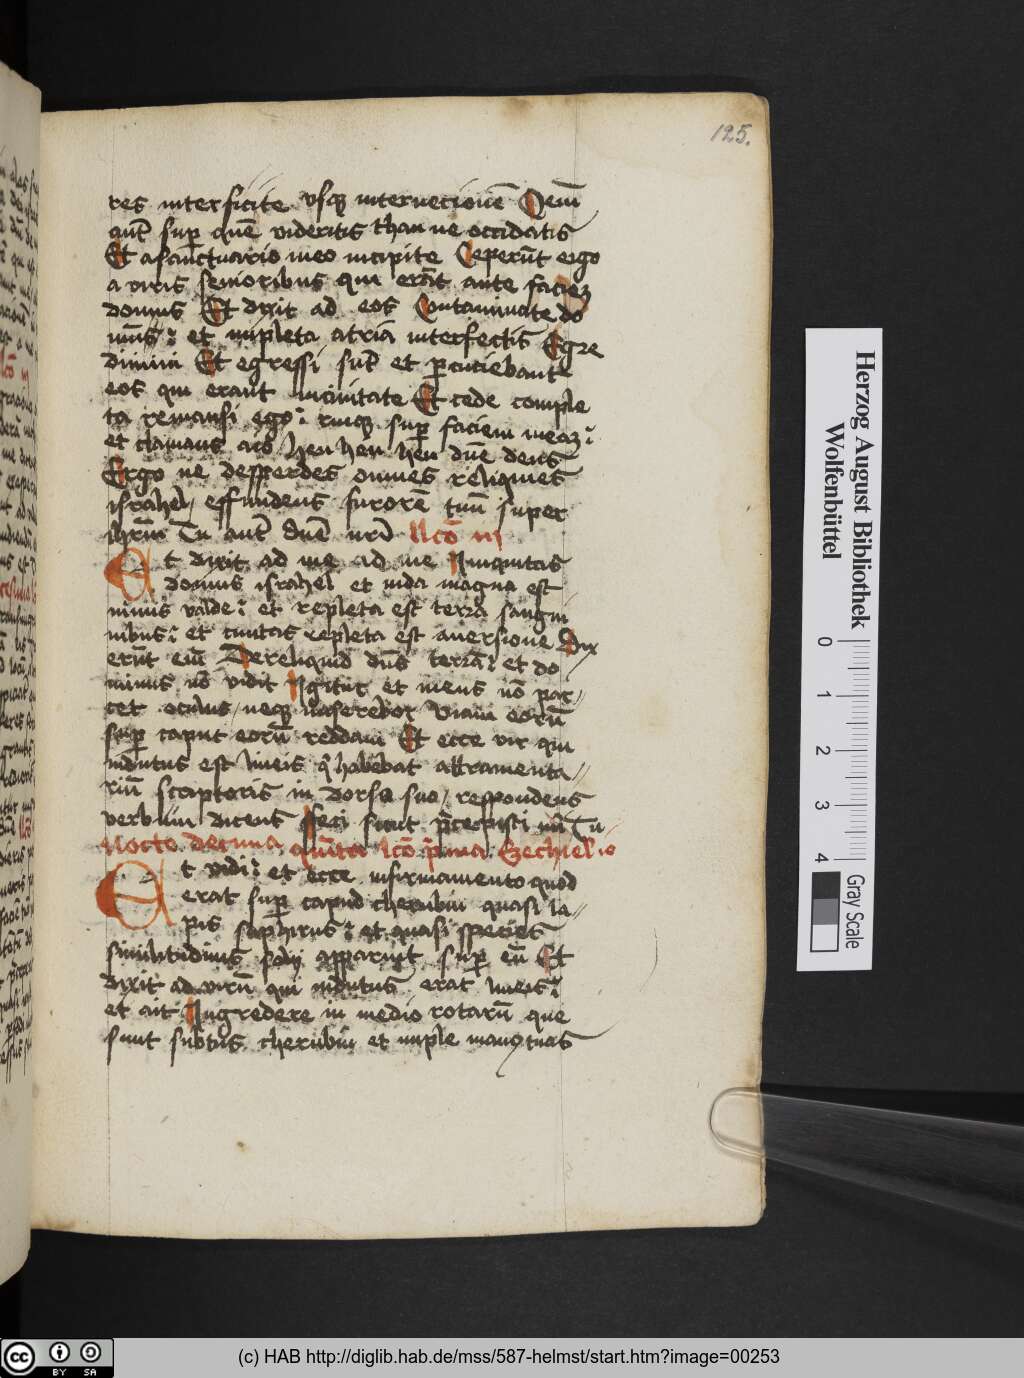 125.
res interficite vsq₃ internecionē Oēm
aūt sup̄ quē videritis thau ne occidatis
Et a sanctuario meo incipite Ceperūt ergo
a viris senioribus qui erāt ante faciem
domus Et dixit ad eos Contaminate do
mūs: et impleta atria interfectis Egre
dimini Et egressi sūt et p̄cuciebant
eos qui erant in ciuitate Et cede comple
ta remansi ego: ruiq₃ sup̄ faciem meaȝ:
et clamans aio heu heu heu dn̄e deus
Ergo ne desperdes omnes reliquies
israhel / effundens furorē tuū super
ihrl̄m Tu aūt dn̄e nr̄i Lc̄o iij
Et dixit ad me ad me Iniquitas
domus israhel et iuda magna est
nimis valde: et repleta est terra sangui
nibus: et ciuitas repleta est auersione Dix
erūt eiī Dereliquid dn̄s terrā: et do
minus nō vidit Igitur et meus nō par/
cet oculus / neq₃ miserebor Viam eorū
sup̄ caput eorū reddam Et ecce vir qui
indutus est lineis q̄ habebat attramenta//
riū scriptoris in dorso suo / respondens
verbum dicens ffeci sicut p̄cepisti m̄ Tu
Nocte decima quīta lc̄o p̄ma Ezechielis
Et vidi: et ecce in firmamento quod
erat sup̄ capud cherubin quasi la//
pis saphirus: et quasi species
similitudinis solij apparuit sup̄ eū Et
dixit ad virū qui indutus erat lineis:
et ait Ingredere in medio rotarū que
sunt subtus cherubin et imple manū tuas
Herzog August Bibliothek
Wolfenbüttel
0 1 2 3 4
Gray Scale
cc BY SA
(c) HAB http://diglib.hab.de/mss/587-helmst/start.htm?image=00253